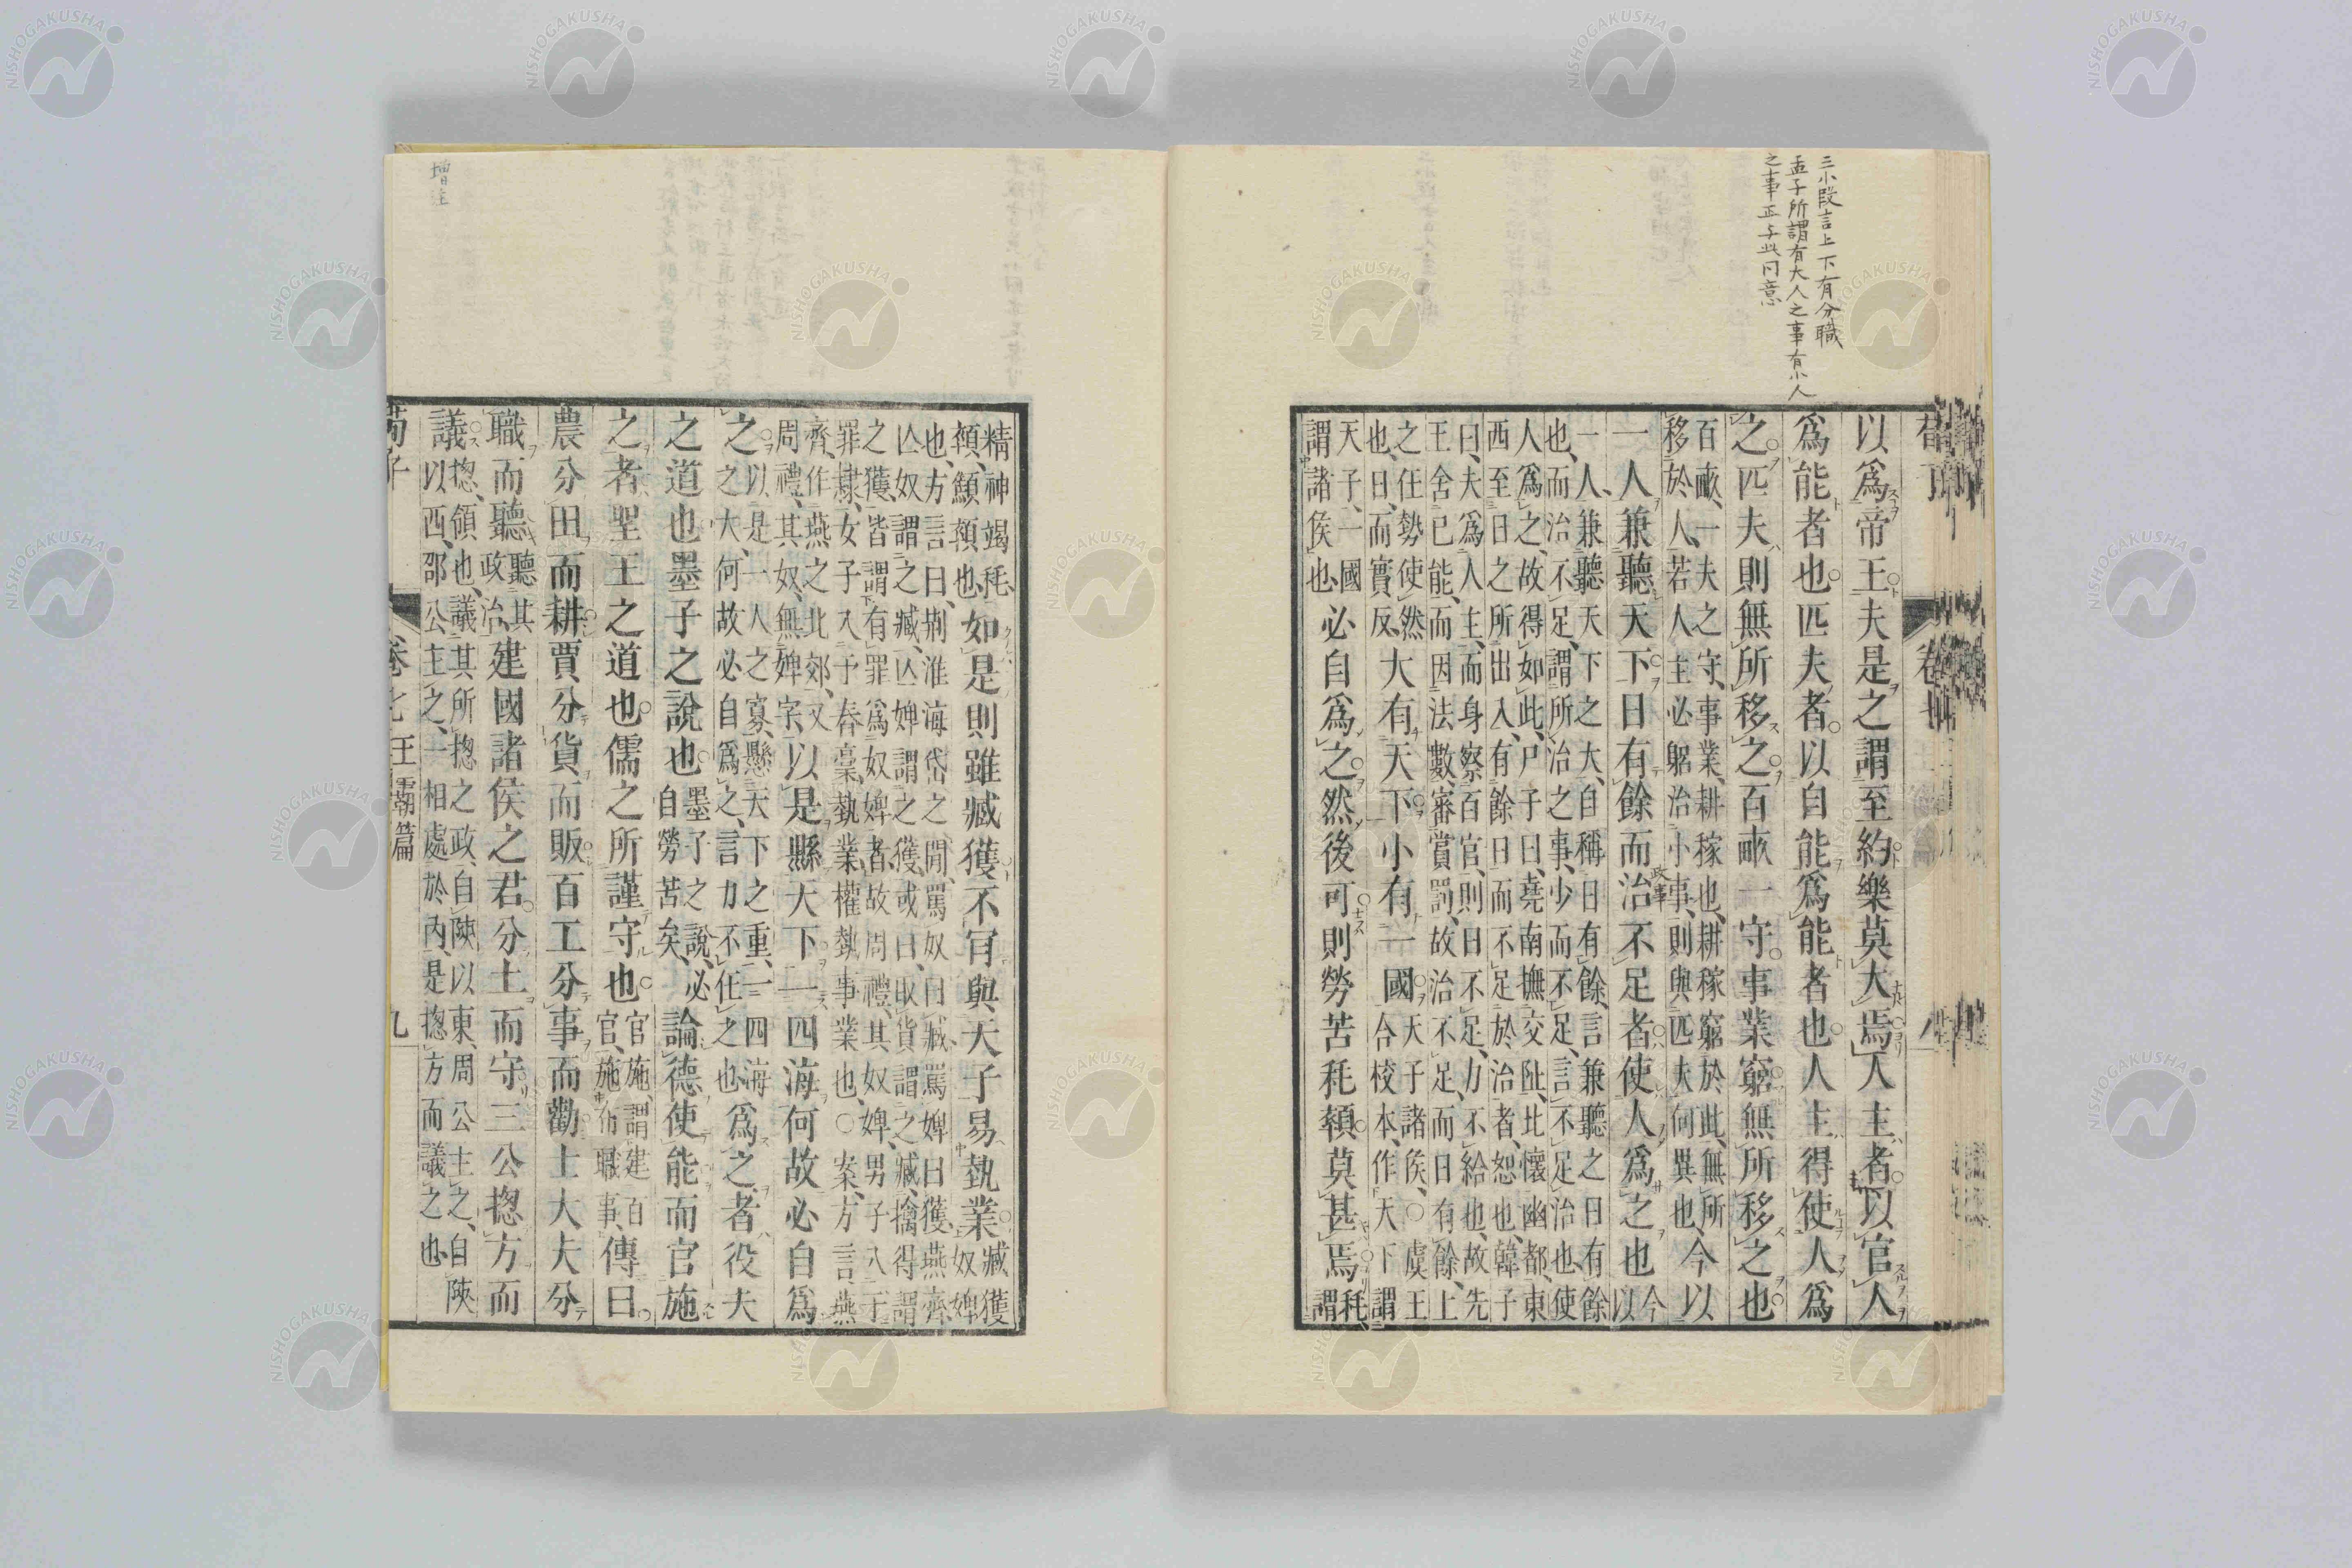 三小段言上下有分職
孟子所謂有大人之事有小人
之事正与此同意
以爲帝王夫是之謂至約樂莫大焉人主者以官人
爲能者也匹夫者以自能爲能者也人主得使人爲
之匹夫則無所移之百畝一守事業窮無所移之也
百畝一夫之守、事業、耕稼也、耕稼窮於此、無所
移於人、若人主必躬治小事、則與匹夫何異也、今以
一人兼聽天下日有餘而治不足者使人爲之也今
以
政事
一人、兼聽天下之大、自稱日有餘、言兼聽之日有餘
也、而治不足、謂所治之事、少而不足、言不足治也、使
人爲之、故得如此、尸子曰、堯南撫交阯、北懷幽都、東
西至日之所出入、有餘日而不足於治者、恕也、韓子
曰、夫爲人主、而身察百官、則日不足、力不給也、故先
王舍己能、而因法數、審賞罰、故治不足、而日有餘、上
之任勢使然
也、曰、而實反、
大有天下小有一國
天子諸侯、○虞王
合校本、作天下、謂
天子、一國
謂諸侯也、
必自爲之然後可則勞苦耗顇莫甚焉
耗
謂
精神竭耗、
顇、顦顇也、
如是則雖臧獲不肯與天子易埶業
臧獲
奴婢
也、方言曰、荆淮海岱之間、罵奴曰臧、罵婢曰獲、燕齊、
亾奴謂之臧、亾婢謂之獲、或曰、取貨謂之臧、擒得謂
之獲、皆謂有罪爲奴婢者、故周禮、其奴婢、男子入于
罪隷、女子入于舂槀、埶業、權埶事業也、○案、方言、燕
齊、作燕之北郊、又
周禮、其奴、無婢字、
以是縣天下一四海何故必自爲
之
以是一人之寡、懸天下之重、一四海
之大、何故必自爲之、言力不任之也
爲之者役夫
之道也墨子之說也
墨子之說、必
自勞苦矣、
論德使能而官施
之者聖王之道也儒之所謹守也
官施、謂建百
官、施布職事、
傳曰
農分田而耕賈分貨而販百工分事而勸士大夫分
職而聽
聽其
政治、
建國諸侯之君分土而守三公摠方而
議
摠、領也、議其所摠之政、自陝以東、周公主之、自陝
以西、邵公主之、一相處於內、是摠方而議之也
荀子
卷七王霸篇
九
增注